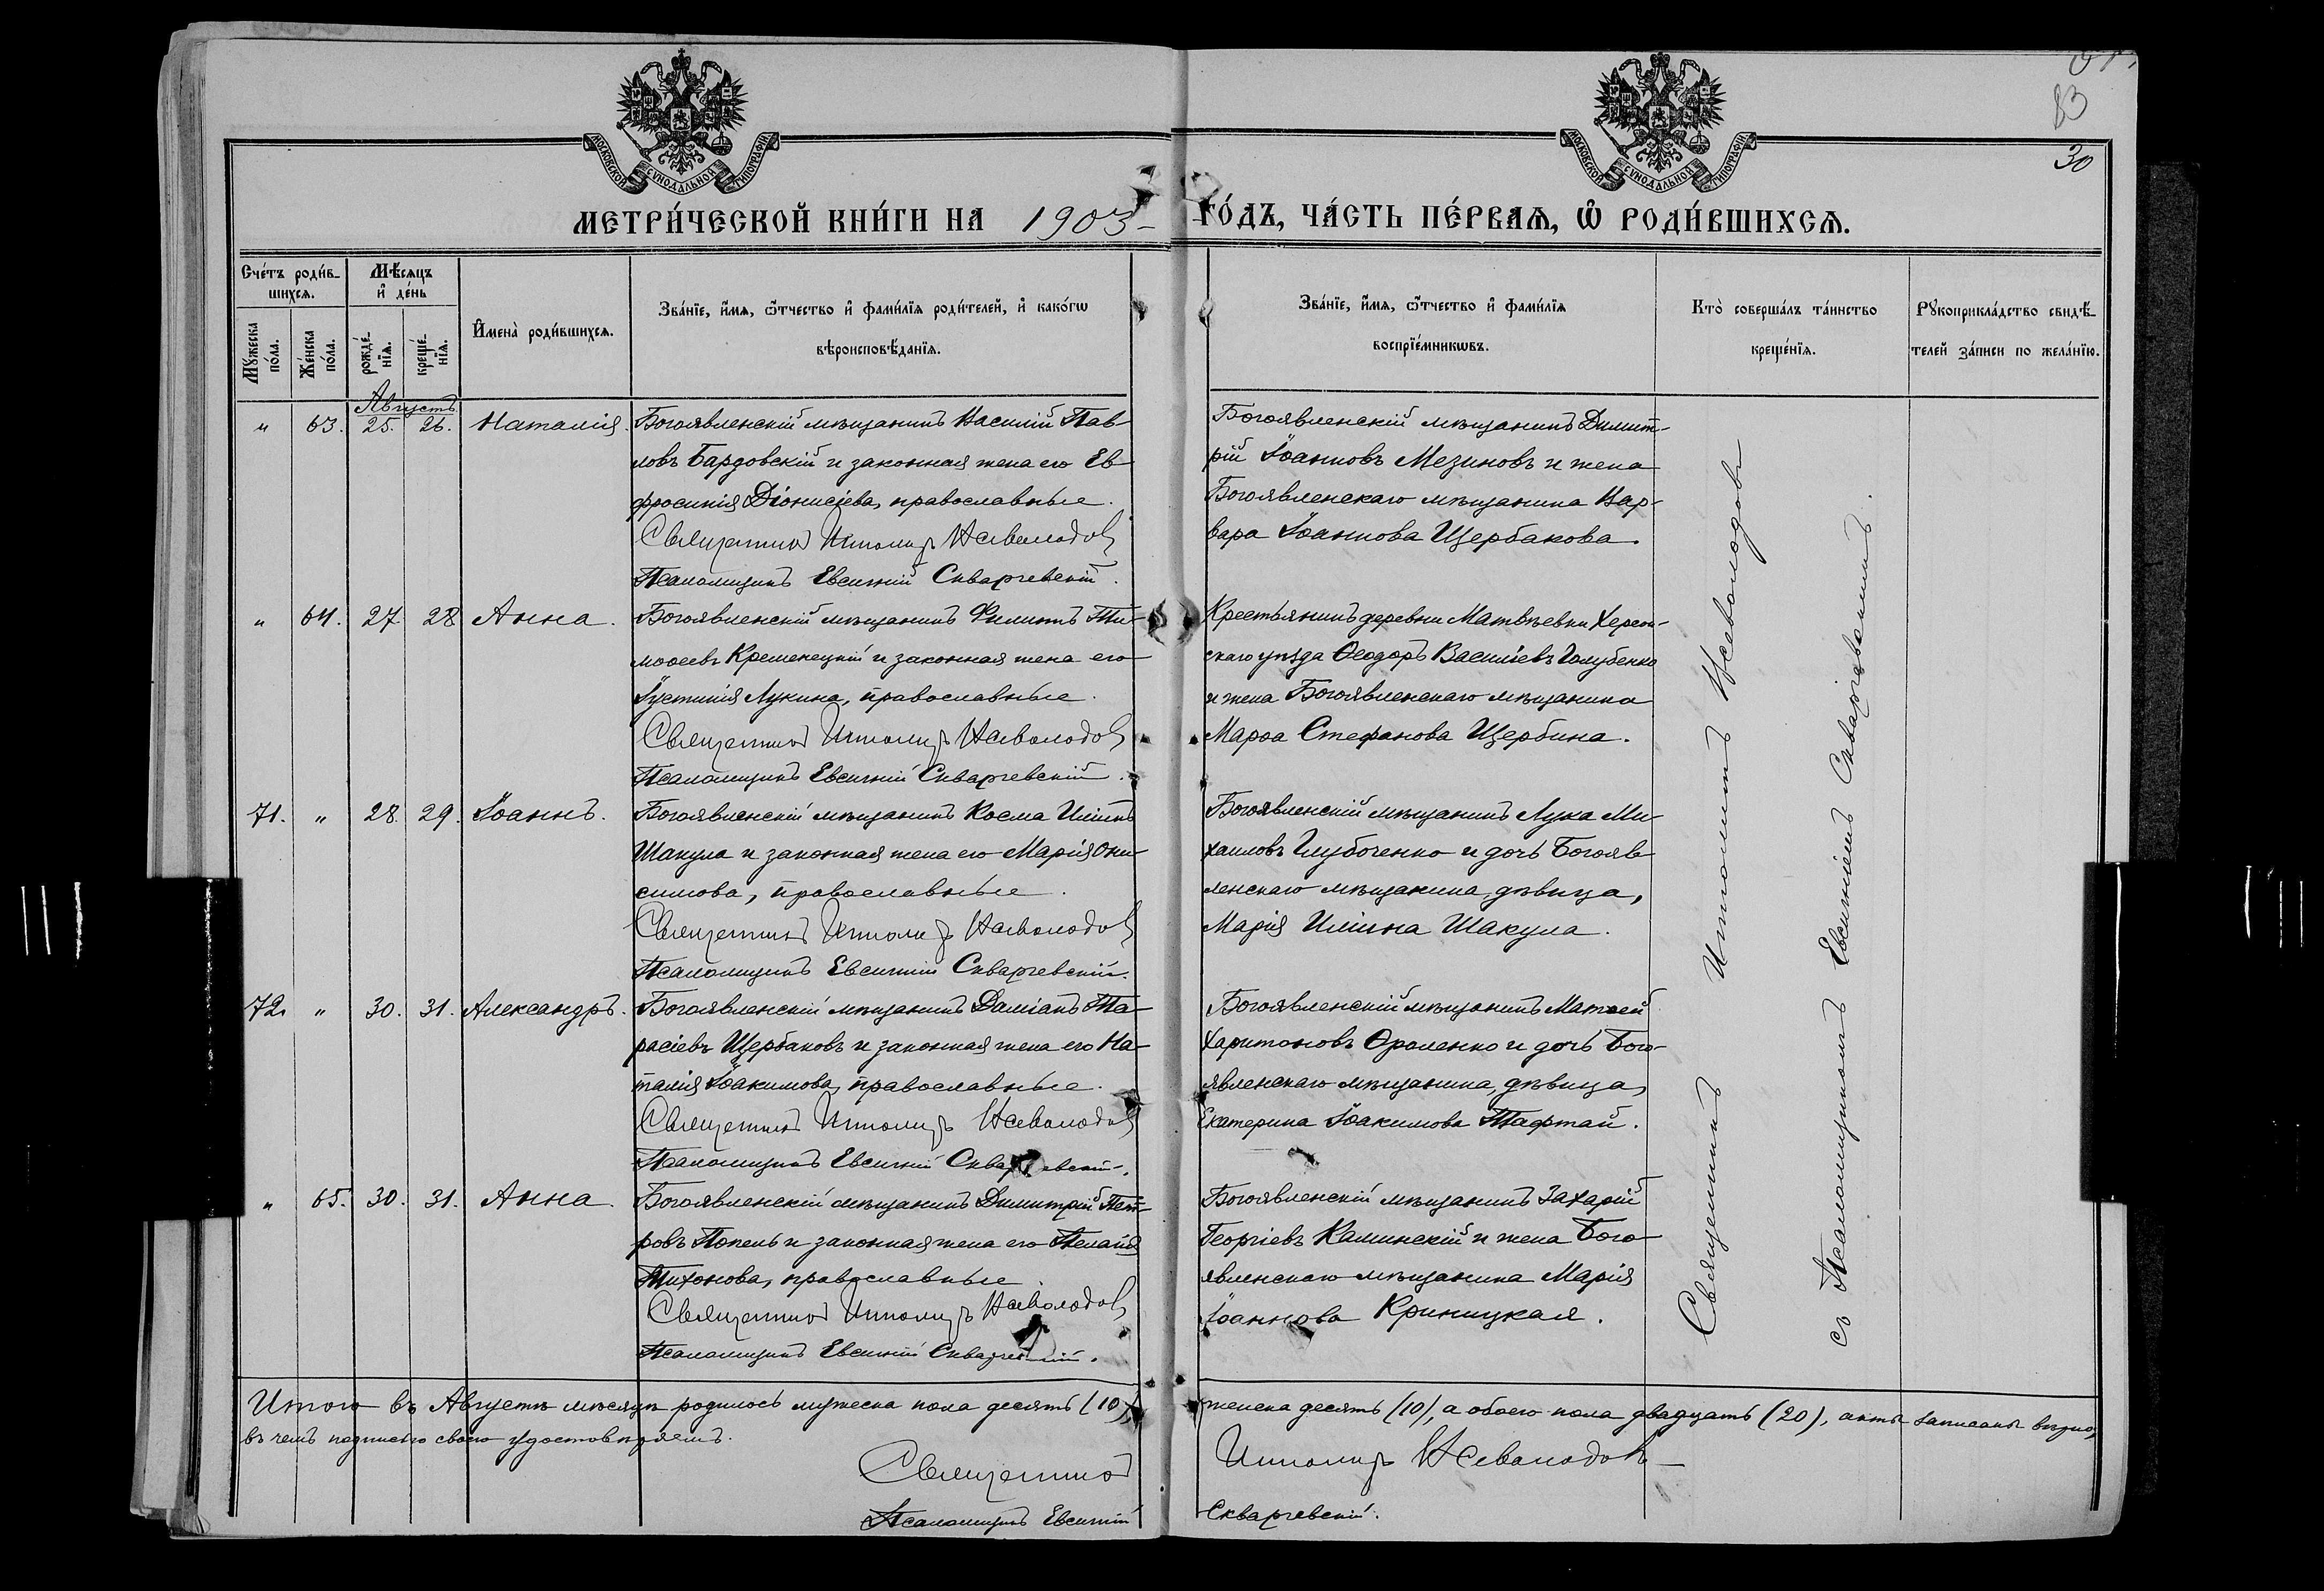 83
30
МОСКОВСКОЙ СѴНОДАЛЬНОЙ ТИПОГРАФІИ.
МОСКОВСКОЙ СѴНОДАЛЬНОЙ ТИПОГРАФІИ.
МЕТРИ́ЧЕСКОЙ КНИ́ГИ НА 1903- ГО́ДЪ, ЧА́СТЬ ПЕ́РВАЯ, Ѡ҆ РОДИ́ВШИХСЯ.
Сче́тъ роди́в-
шихся.
Мѣ́сяцъ
и҆ де́нь
Мꙋ́жеска по́ла.
Же́нска по́ла.
рожде́-нїя.
креще́-нїя.
И҆мена̀ роди́вшихся.
Зва́нїе, и҆́мя, ѻ҆́тчество и҆ фами́лїя роди́телей, и҆ како́гѡ
вѣроисповѣ́данїя.
Зва́нїе, и҆́мя, ѻ҆́тчество и҆ фами́лїя
воспрїе́мникѡвъ.
Кто̀ соверша́лъ та́инство
креще́нїя.
Рꙋкоприкла́дство свидѣ́-
телей за́писи по жела́нїю.
Августъ
„ 63. 25. 26. Наталія. Богоявленскій мѣщанинъ Василій Пав-
ловъ Бардовскій и законная жена его Ев-
фросинія Діонисіева, православные.
Священникъ Ипполитъ Всеволодовъ
Псаломщикъ Евсигній Скваржевскій.
Богоявленскій мѣщанинъ Димит-
рій Іоанновъ Мезиновъ и жена
Богоявленскаго мѣщанина Вар-
вара Іоаннова Щербакова.
„ 64. 27 28 Анна. Богоявленскій мѣщанинъ Филиппъ Ти-
моѳеевъ Кременецкій и законная жена его
Іустинія Лукина, православные.
Священникъ Ипполитъ Всеволодовъ
Псаломщикъ Евсигній Скваржевскій.
Крестьянинъ деревни Матвѣевки Херсон-
скаго уѣзда Ѳеодоръ Васильевъ Голубенко
и жена Богоявленскаго мѣщанина
Марѳа Стефанова Щербина.
71. „ 28. 29. Іоаннъ. Богоявленскій мѣщанинъ Косма Иліинъ
Шакула и законная жена его Марія Они-
симова, православные.
Священникъ Ипполитъ Всеволодовъ
Псаломщикъ Евсигній Скваржевскій.
Богоявленскій мѣщанинъ Лука Ми-
хаиловъ Глубоченко и дочь Богояв-
ленскаго мѣщанина, дѣвица,
Марія Иліина Шакула.
72. „ 30. 31. Александръ. Богоявленскій мѣщанинъ Даміанъ Та-
расіевъ Щербаковъ и законная жена его На-
талія Іоакимова, православные.
Священникъ Ипполитъ Всеволодовъ
Псаломщикъ Евсигній Скваржевскій.
Богоявленскій мѣщанинъ Матѳей
Харитоновъ Ѳроленко и дочь Бого-
явленскаго мѣщанина, дѣвица,
Екатерина Іоакимова Тафтай.
„ 65. 30. 31. Анна. Богоявленскій мѣщанинъ Димитрій Пет-
ровъ Попель и законная жена его Пелагія
Тихонова, православные.
Священникъ Ипполитъ Всеволодовъ
Псаломщикъ Евсигній Скваржевскій.
Богоявленскій мѣщанинъ Захарій
Георгіевъ Каминскій и жена Бого-
явленскаго мѣщанина Марія
Іоаннова Криницкая.
Священникъ Ипполитъ Всеволодовъ
съ Псаломщикомъ Евсигніемъ Скваржевскимъ.
Итого въ Августѣ мѣсяцѣ родилось мужеска пола десять (10), женска десять (10), а обоего пола двадцать (20), акты записаны вѣрно,
въ чемъ подписью своею удостовѣряемъ.
Священникъ Ипполитъ Всеволодовъ
Псаломщикъ Евсигній Скваржевскій.